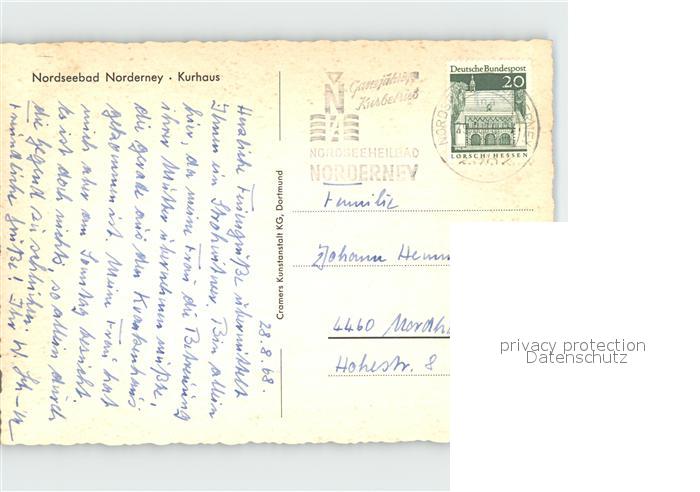 Nordseebad Norderney · Kurhaus
Herzliche Feriengrüße übermittelt
Ihnen ein Strohwitwer. Bin allein
hier, da meine Frau die Betreuung
ihrer Mutter übernehmen mußte,
die gerade aus dem Krankenhaus
gekommen ist. Meine Frau hat
mich aber am Sonntag besucht.
Es ist doch nichts, so allein durch
die Gegend zu schleichen.
Freundliche Grüße! Ihr W.
28.8.68.
Cramers Kunstanstalt KG, Dortmund
Ganzjährig
Kurbetrieb
N
NORDSEEHEILBAD
NORDERNEY
Deutsche Bundespost
20
LORSCH/HESSEN
Familie
Johann
4460
Hohestr. 8
privacy protection
Datenschutz